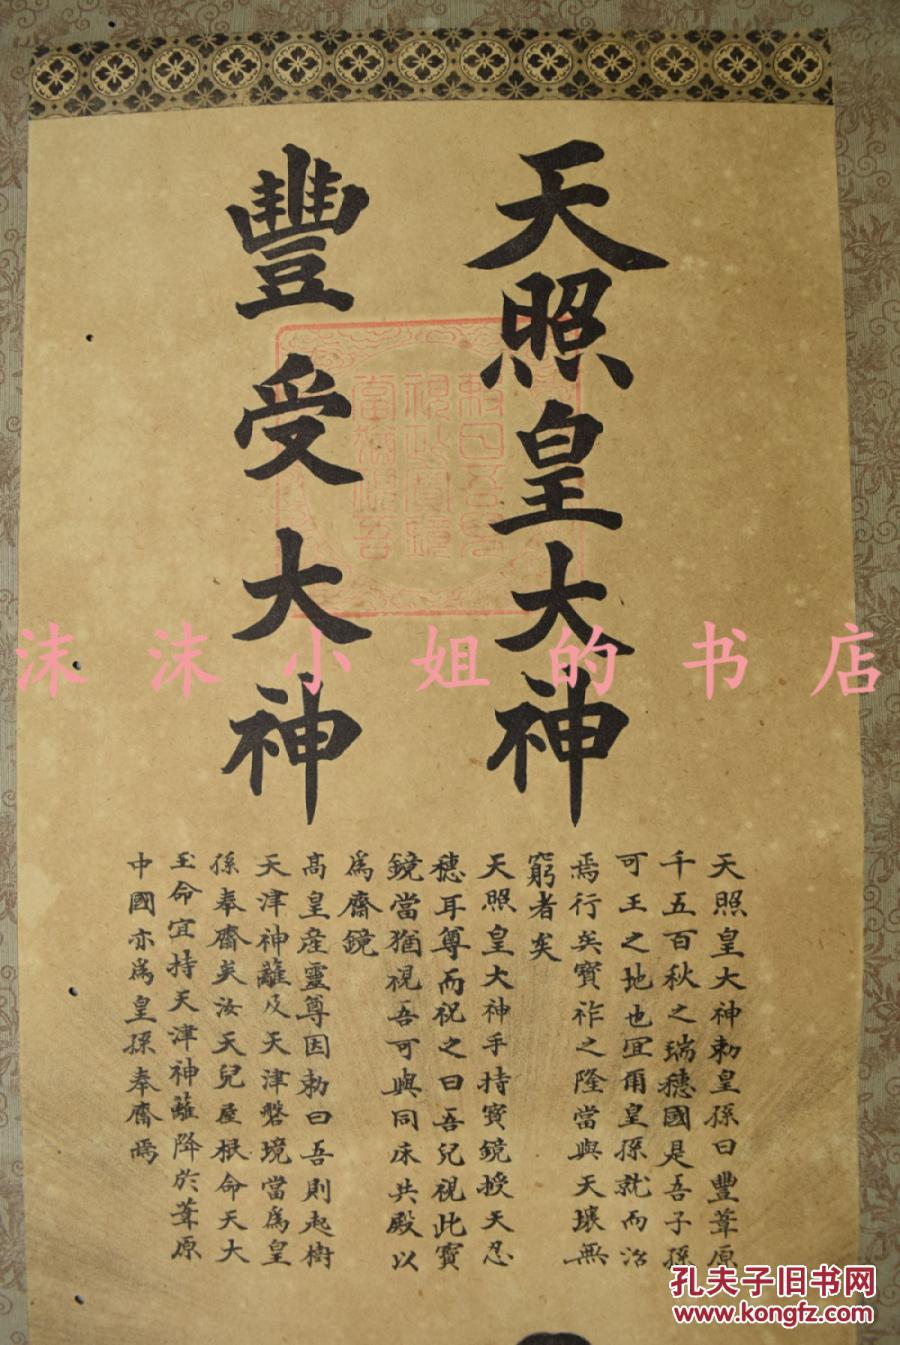 天照皇大神
豐受大神
天照皇大神勅皇孫曰豐葦原
千五百秋之瑞穗國是吾子孫
可王之地也宜爾皇孫就而治
焉行矣寶祚之隆當與天壤無
窮者矣
天照皇大神手持寶鏡授天忍
穗耳尊而祝之曰吾兒視此寶
鏡當猶視吾可與同床共殿以
爲齋鏡
高皇産靈尊因勅曰吾則起樹
天津神籬及天津磐境當爲皇
孫奉齋矣汝天兒屋根命天太
玉命宜持天津神籬降於葦原
中國亦爲皇孫奉齋焉
沫沫小姐的书店
孔夫子旧书网
www.kongfz.com